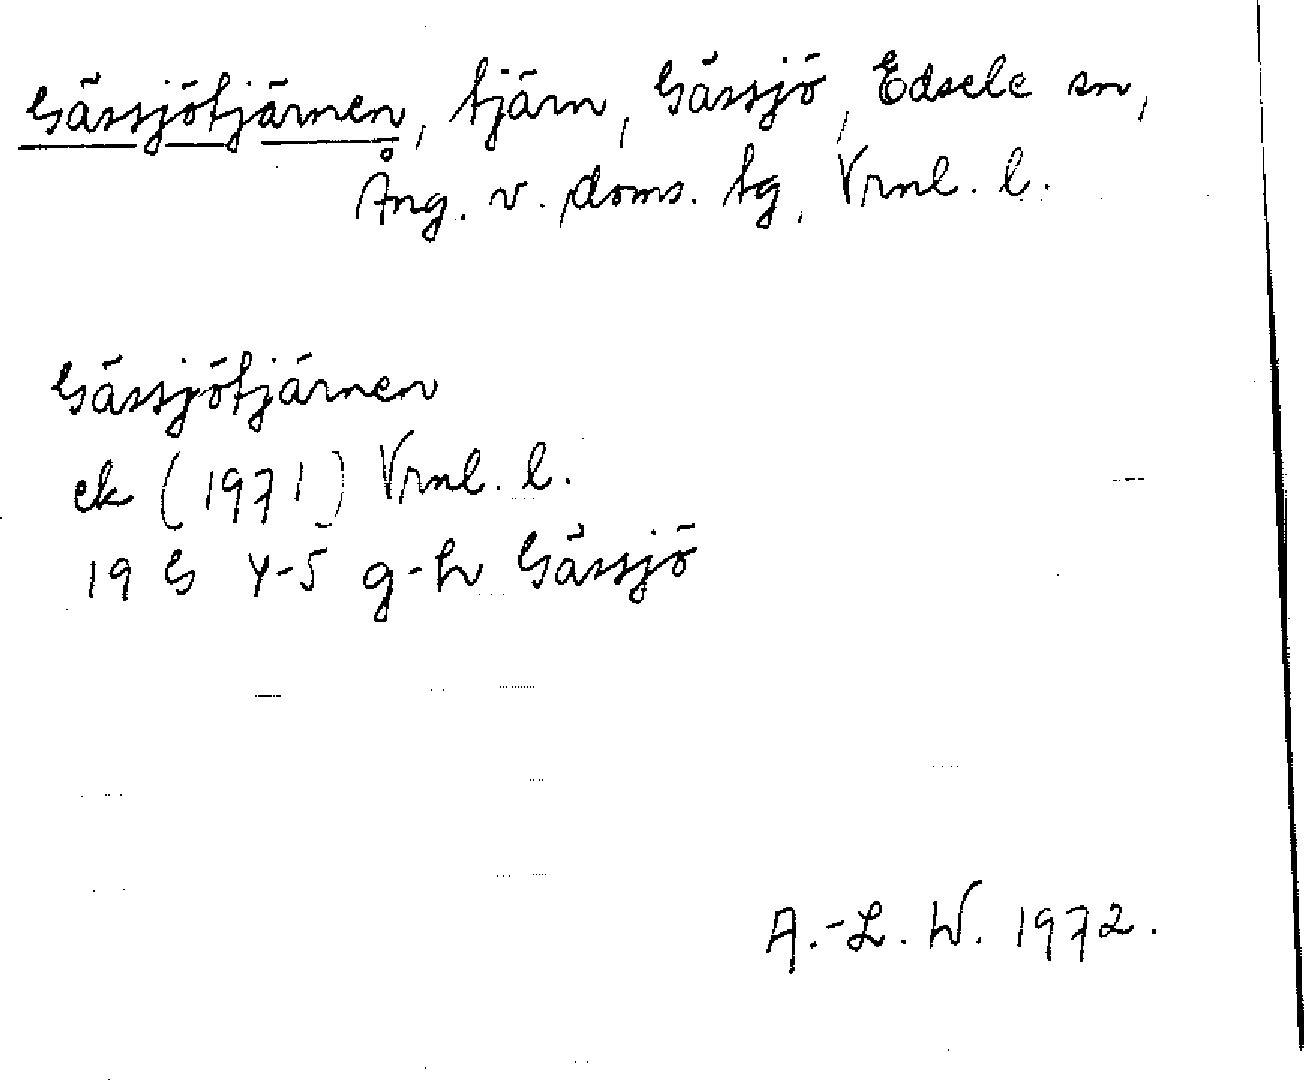 Gässjötjärnen, tjärn, Gässjö, Edsele sn,
Ång. v. doms. tg, Vrnl. l.
Gässjötjärnen
ek (1971) Vrnl. l.
19 G 4-5 g-h Gässjö
A.-L. W. 1972.